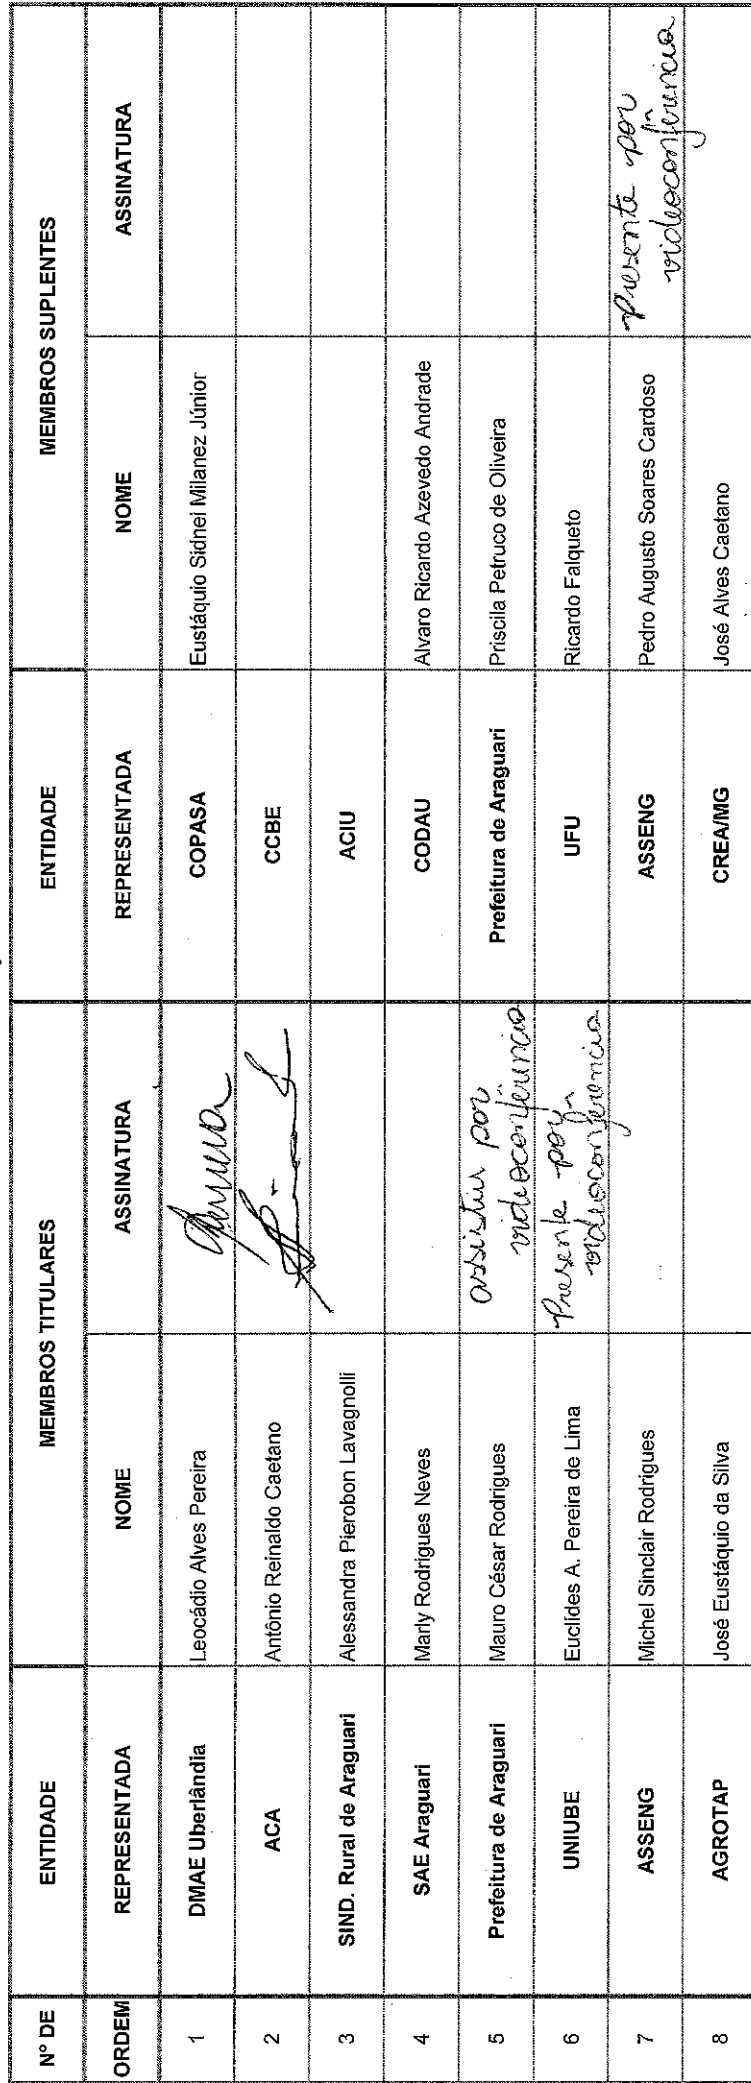 Nº DE ENTIDADE MEMBROS TITULARES ENTIDADE MEMBROS SUPLENTES
ORDEM REPRESENTADA NOME ASSINATURA REPRESENTADA NOME ASSINATURA
1 DMAE Uberlândia Leocádio Alves Pereira COPASA Eustáquio Sidnei Milanez Júnior
2 ACA Antônio Reinaldo Caetano CCBE
3 SIND. Rural de Araguari Alessandra Pierobon Lavagnolli ACIU
4 SAE Araguari Marly Rodrigues Neves CODAU Alvaro Ricardo Azevedo Andrade
5 Prefeitura de Araguari Mauro César Rodrigues assistiu por videoconferência Prefeitura de Araguari Priscila Petruco de Oliveira
6 UNIUBE Euclides A. Pereira de Lima Presente por videoconferencia UFU Ricardo Falqueto
7 ASSENG Michel Sinclair Rodrigues ASSENG Pedro Augusto Soares Cardoso Presente por videoconferência
8 AGROTAP José Eustáquio da Silva CREA/MG José Alves Caetano